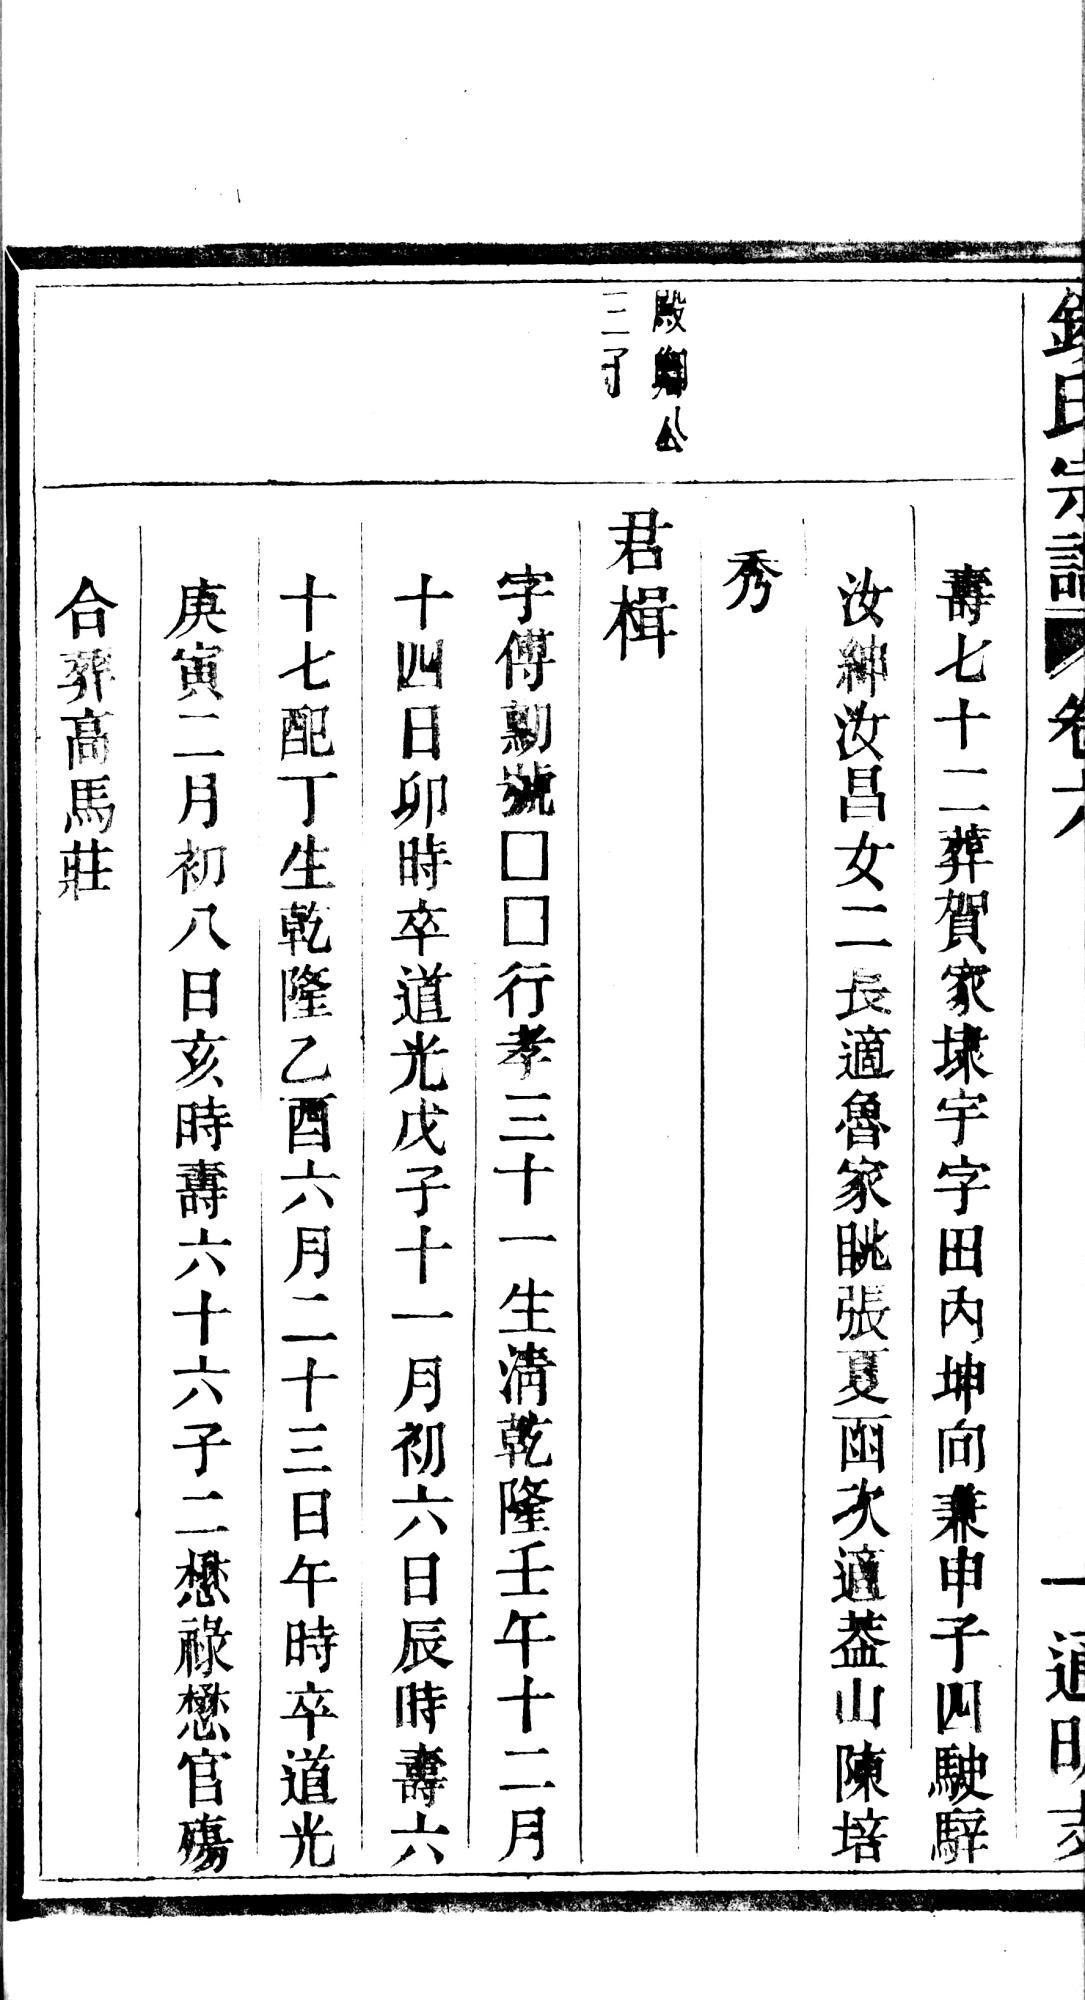 錢氏宗譜 卷六 一 通明支
壽七十二葬賀家埭宇字田內坤向兼申子四駛騂
汝紳汝昌女二長適魯家眺張夏函次適葢山陳培
秀
殿卿公
三子
君楫
字傅勳號□□行孝三十一生清乾隆壬午十二月
十四日卯時卒道光戊子十一月初六日辰時壽六
十七配丁生乾隆乙酉六月二十三日午時卒道光
庚寅二月初八日亥時壽六十六子二懋祿懋官殤
合葬高馬莊